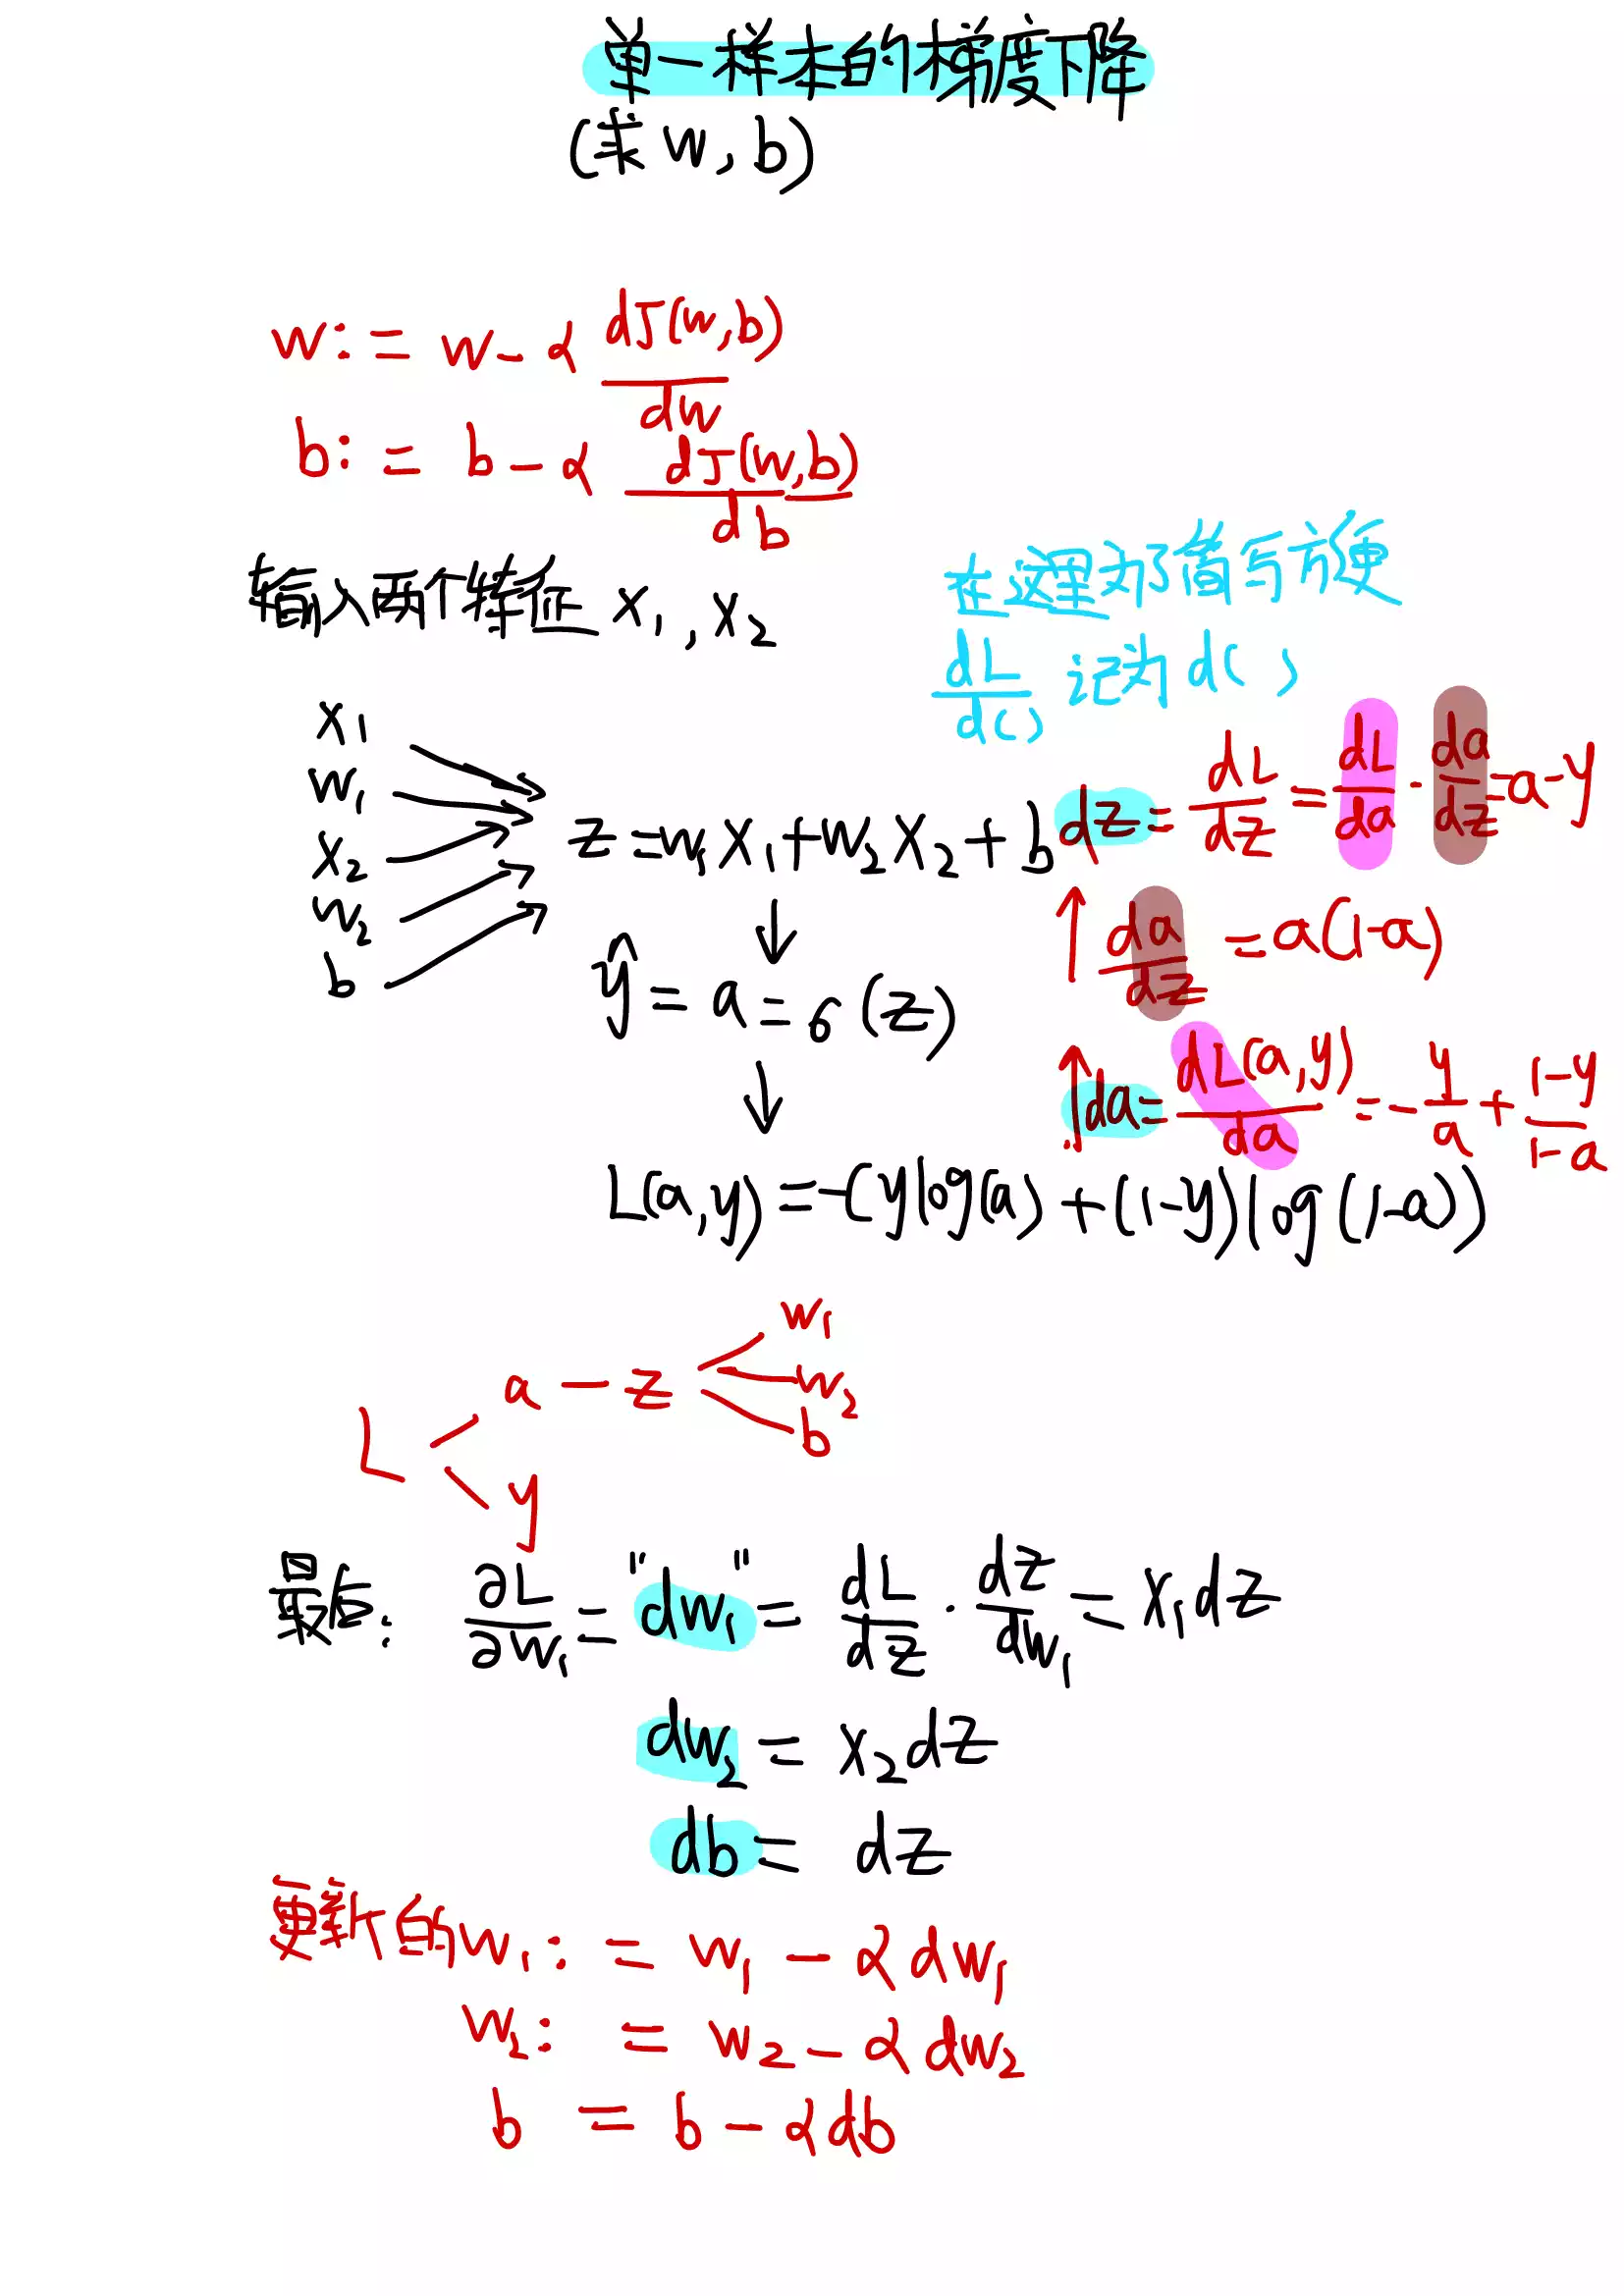 单一样本的梯度下降
(求w,b)
w:=w-α dJ(w,b)/dw
b:=b-α dJ(w,b)/db
输入两个特征 x₁,x₂
在这里为了简写方便
dL/d() 记为d()
x₁
w₁
x₂
w₂
b
z=w₁x₁+w₂x₂+b
dz=dL/dz=dL/da·da/dz=a-y
↑ da/dz=a(1-a)
ŷ=a=6(z)
↑ da=dL(a,y)/da=-y/a+(1-y)/(1-a)
L(a,y)=-(ylog(a)+(1-y)log(1-a))
w₁
a-z w₂
b
L
y
最后: ∂L/∂w₁="dw₁"=dL/dz·dz/dw₁=x₁dz
dw₂=x₂dz
db=dz
更新的w₁:=w₁-αdw₁
w₂:=w₂-αdw₂
b=b-αdb